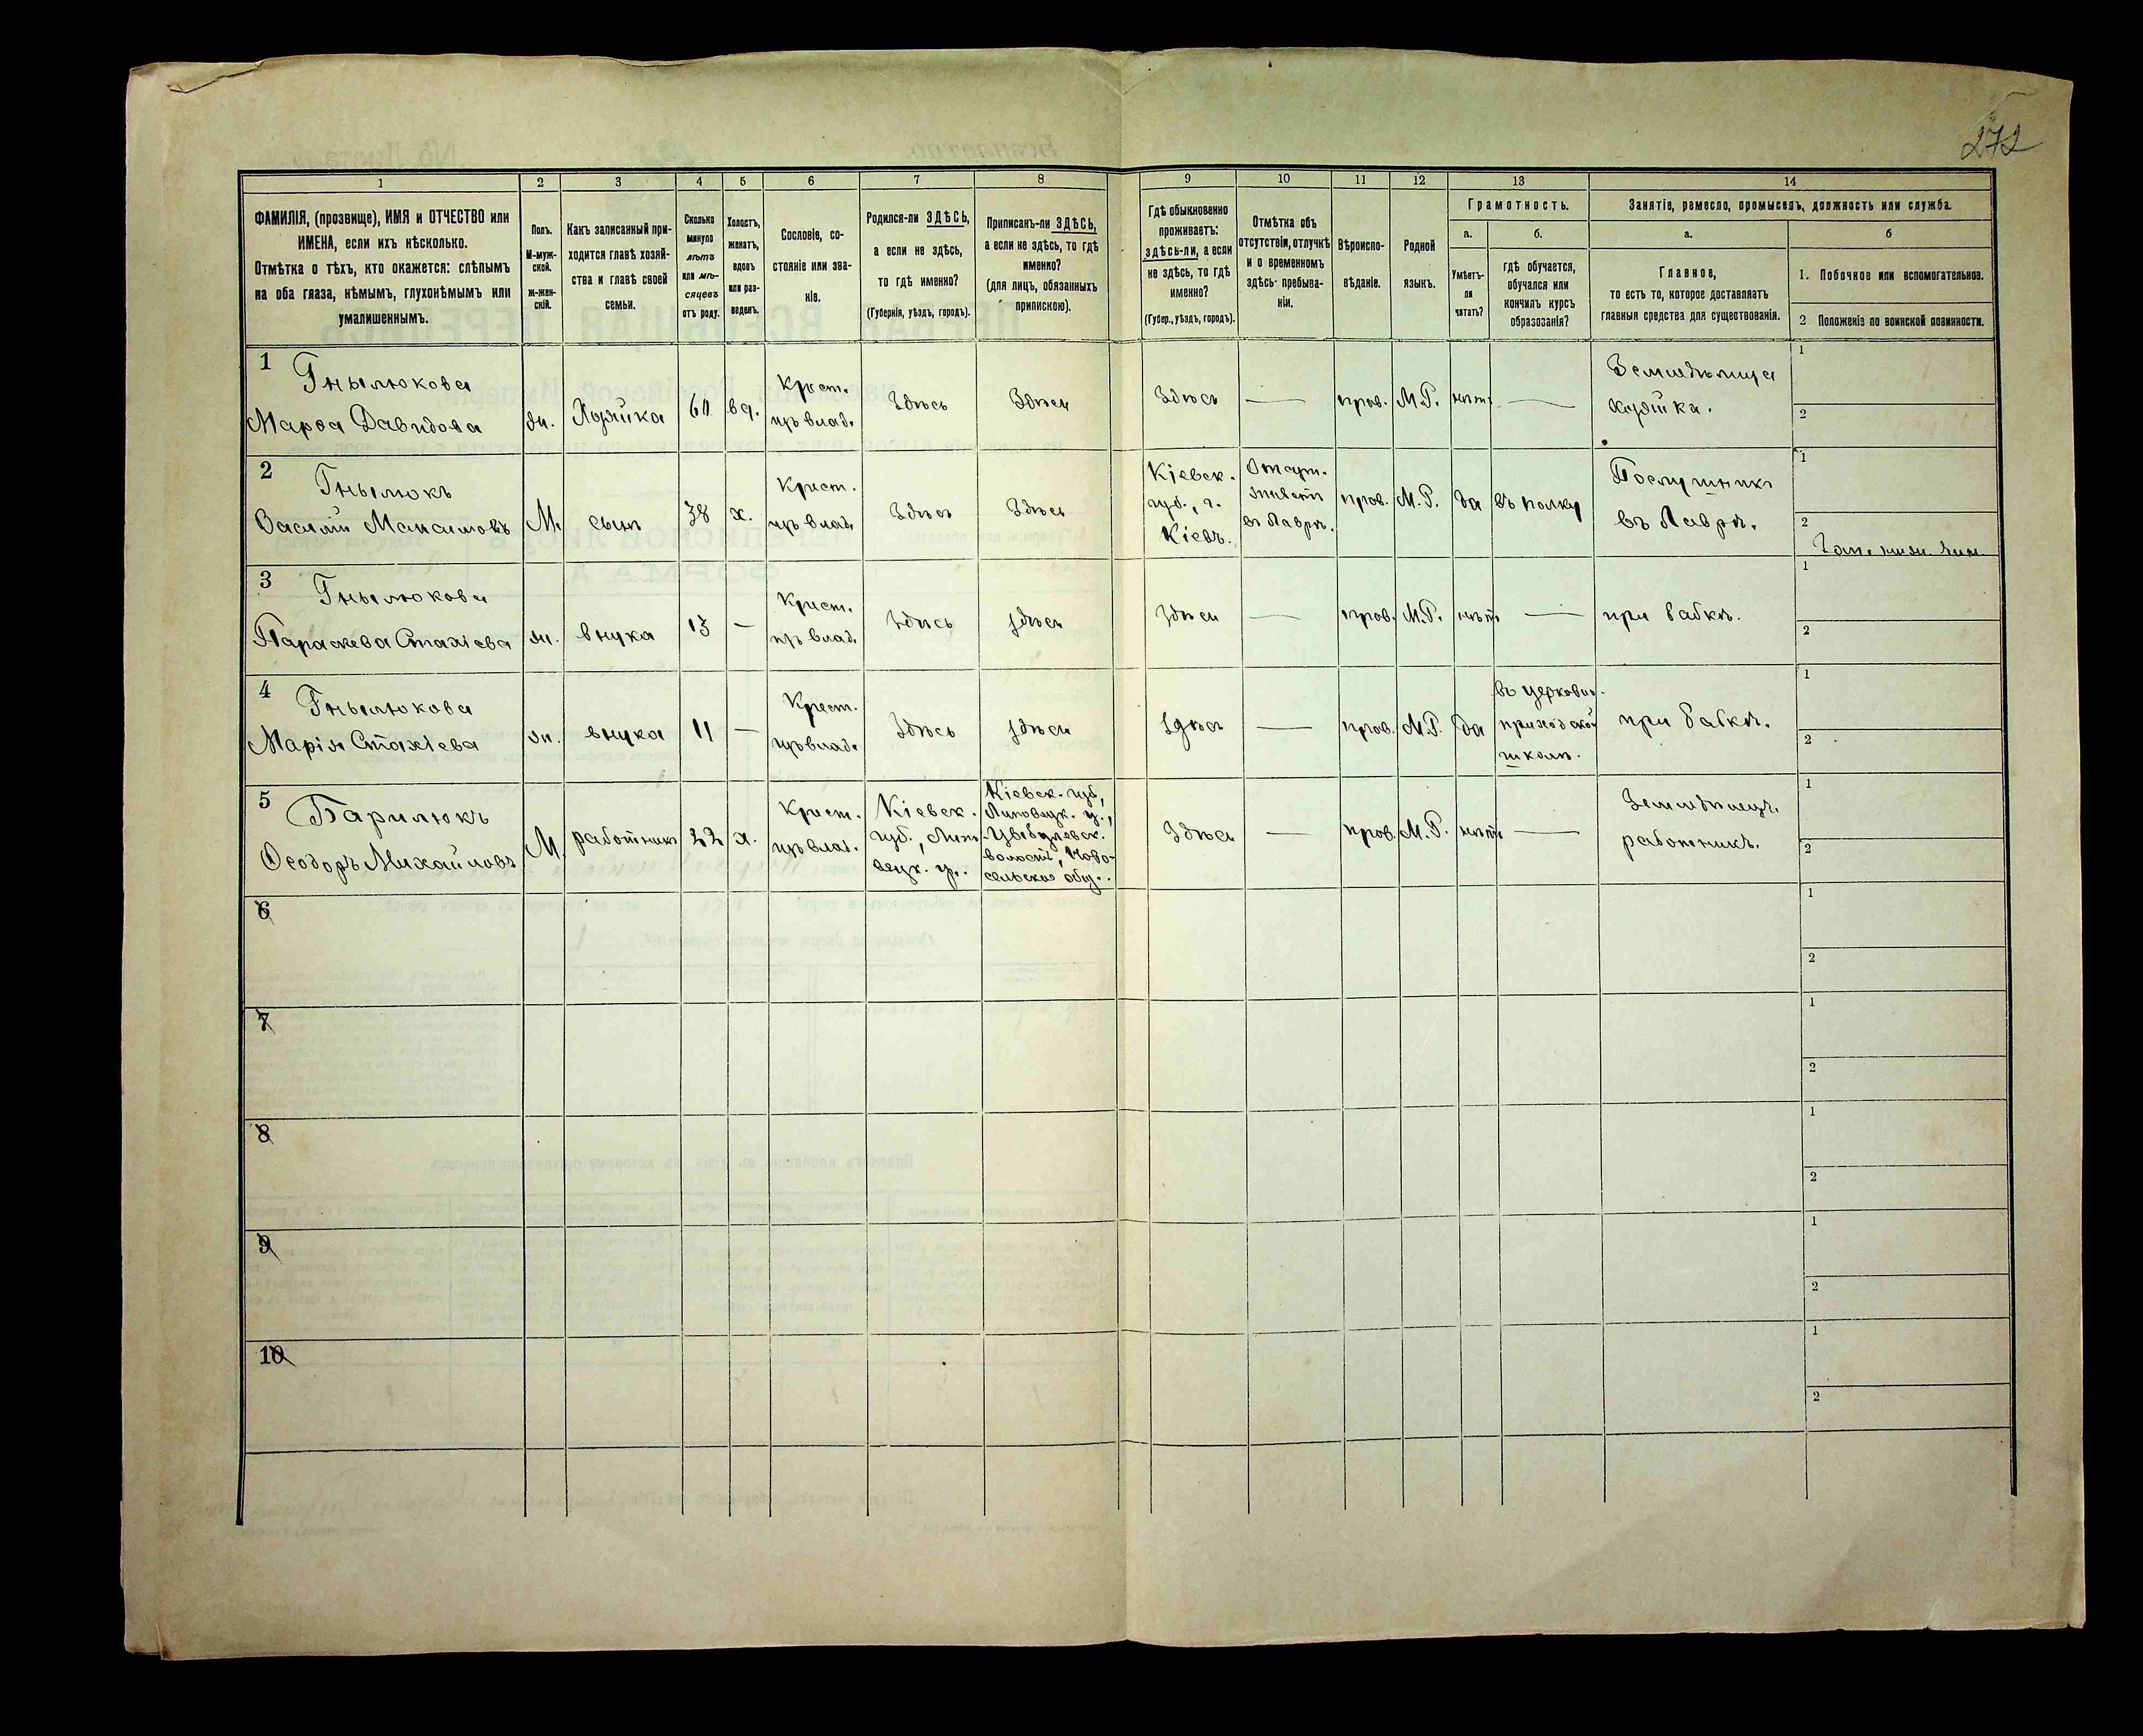 272
1 2 3 4 5 6 7 8 9 10 11 12 13 14
ФАМИЛІЯ, (прозвище), ИМЯ и ОТЧЕСТВО или
ИМЕНА, если ихъ нѣсколько.
Отмѣтка о тѣхъ, кто окажется: слѣпымъ
на оба глаза, нѣмымъ, глухонѣмымъ или
умалишеннымъ.
Полъ.
М-муж-
ской.
Ж-жен-
скій.
Какъ записанный при-
ходится главѣ хозяй-
ства и главѣ своей
семьи.
Сколько
минуло
лѣтъ
или мѣ-
сяцевъ
отъ роду.
Холостъ,
женатъ,
вдовъ
или раз-
веденъ.
Сословіе, со-
стояніе или зва-
ніе.
Родился-ли ЗДѢСЬ,
а если не здѣсь,
то гдѣ именно?
(Губернія, уѣздъ, городъ).
Приписанъ-ли ЗДѢСЬ,
а если не здѣсь, то гдѣ
именно?
(для лицъ, обязанныхъ
припискою).
Гдѣ обыкновенно
проживаетъ:
здѣсь-ли, а если
не здѣсь, то гдѣ
именно?
(Губер., уѣздъ, городъ).
Отмѣтка объ
отсутствіи, отлучкѣ
и о временномъ
здѣсь пребыва-
ніи.
Вѣроиспо-
вѣданіе.
Родной
языкъ.
Грамотность.
а.
Умѣетъ-
ли
читать?
б.
гдѣ обучается,
обучался или
кончилъ курсъ
образованія?
Занятіе, ремесло, промыселъ, должность или служба.
а.
Главное,
то есть то, которое доставляетъ
главныя средства для существованія.
б
1. Побочное или вспомогательное.
2 Положеніе по воинской повинности.
1
Гнылюкова
Марѳа Давидова
жн.
Хозяйка
60
вд.
Крест.
изъ влад.
Здѣсь
Здѣсь
Здѣсь
—
прав.
М.Р.
нѣтъ
—
Землѣделица
хозяйка.
1
2
2
Гнылюкъ
Василій Максимовъ
М.
сынъ
38
х.
Крест.
изъ влад.
Здѣсь
Здѣсь
Кіевск.
губ., г.
Кіевъ.
въ Лаврѣ.
прав.
М.Р.
да
въ полку
Послушникъ
въ Лаврѣ.
1
2
3
Гнылюкова
Параскева Стахіева
жн.
внука
13
—
Крест.
изъ влад.
Здѣсь
здѣсь
Здѣсь
—
прав.
М.Р.
нѣтъ
—
при бабкѣ.
1
2
4
Гнылюкова
Марія Стахіева
жн.
внука
11
—
Крест.
изъ влад.
Здѣсь
здѣсь
здѣсь
—
прав.
М.Р.
да
въ церковно-
приходской
школѣ.
при бабкѣ.
1
2
5
Барилюкъ
Ѳеодоръ Михайловъ
М.
работникъ
22
х.
Крест.
изъ влад.
Кіевск.
губ., Липо
вецк. у.
Кіевск. губ,
Липовецк. у.,
волости, Ново-
сельское общ.
Здѣсь
—
прав.
М.Р.
нѣтъ
—
Земледѣлецъ.
работникъ.
1
2
6
1
2
7
1
2
8
1
2
9
1
2
10
1
2